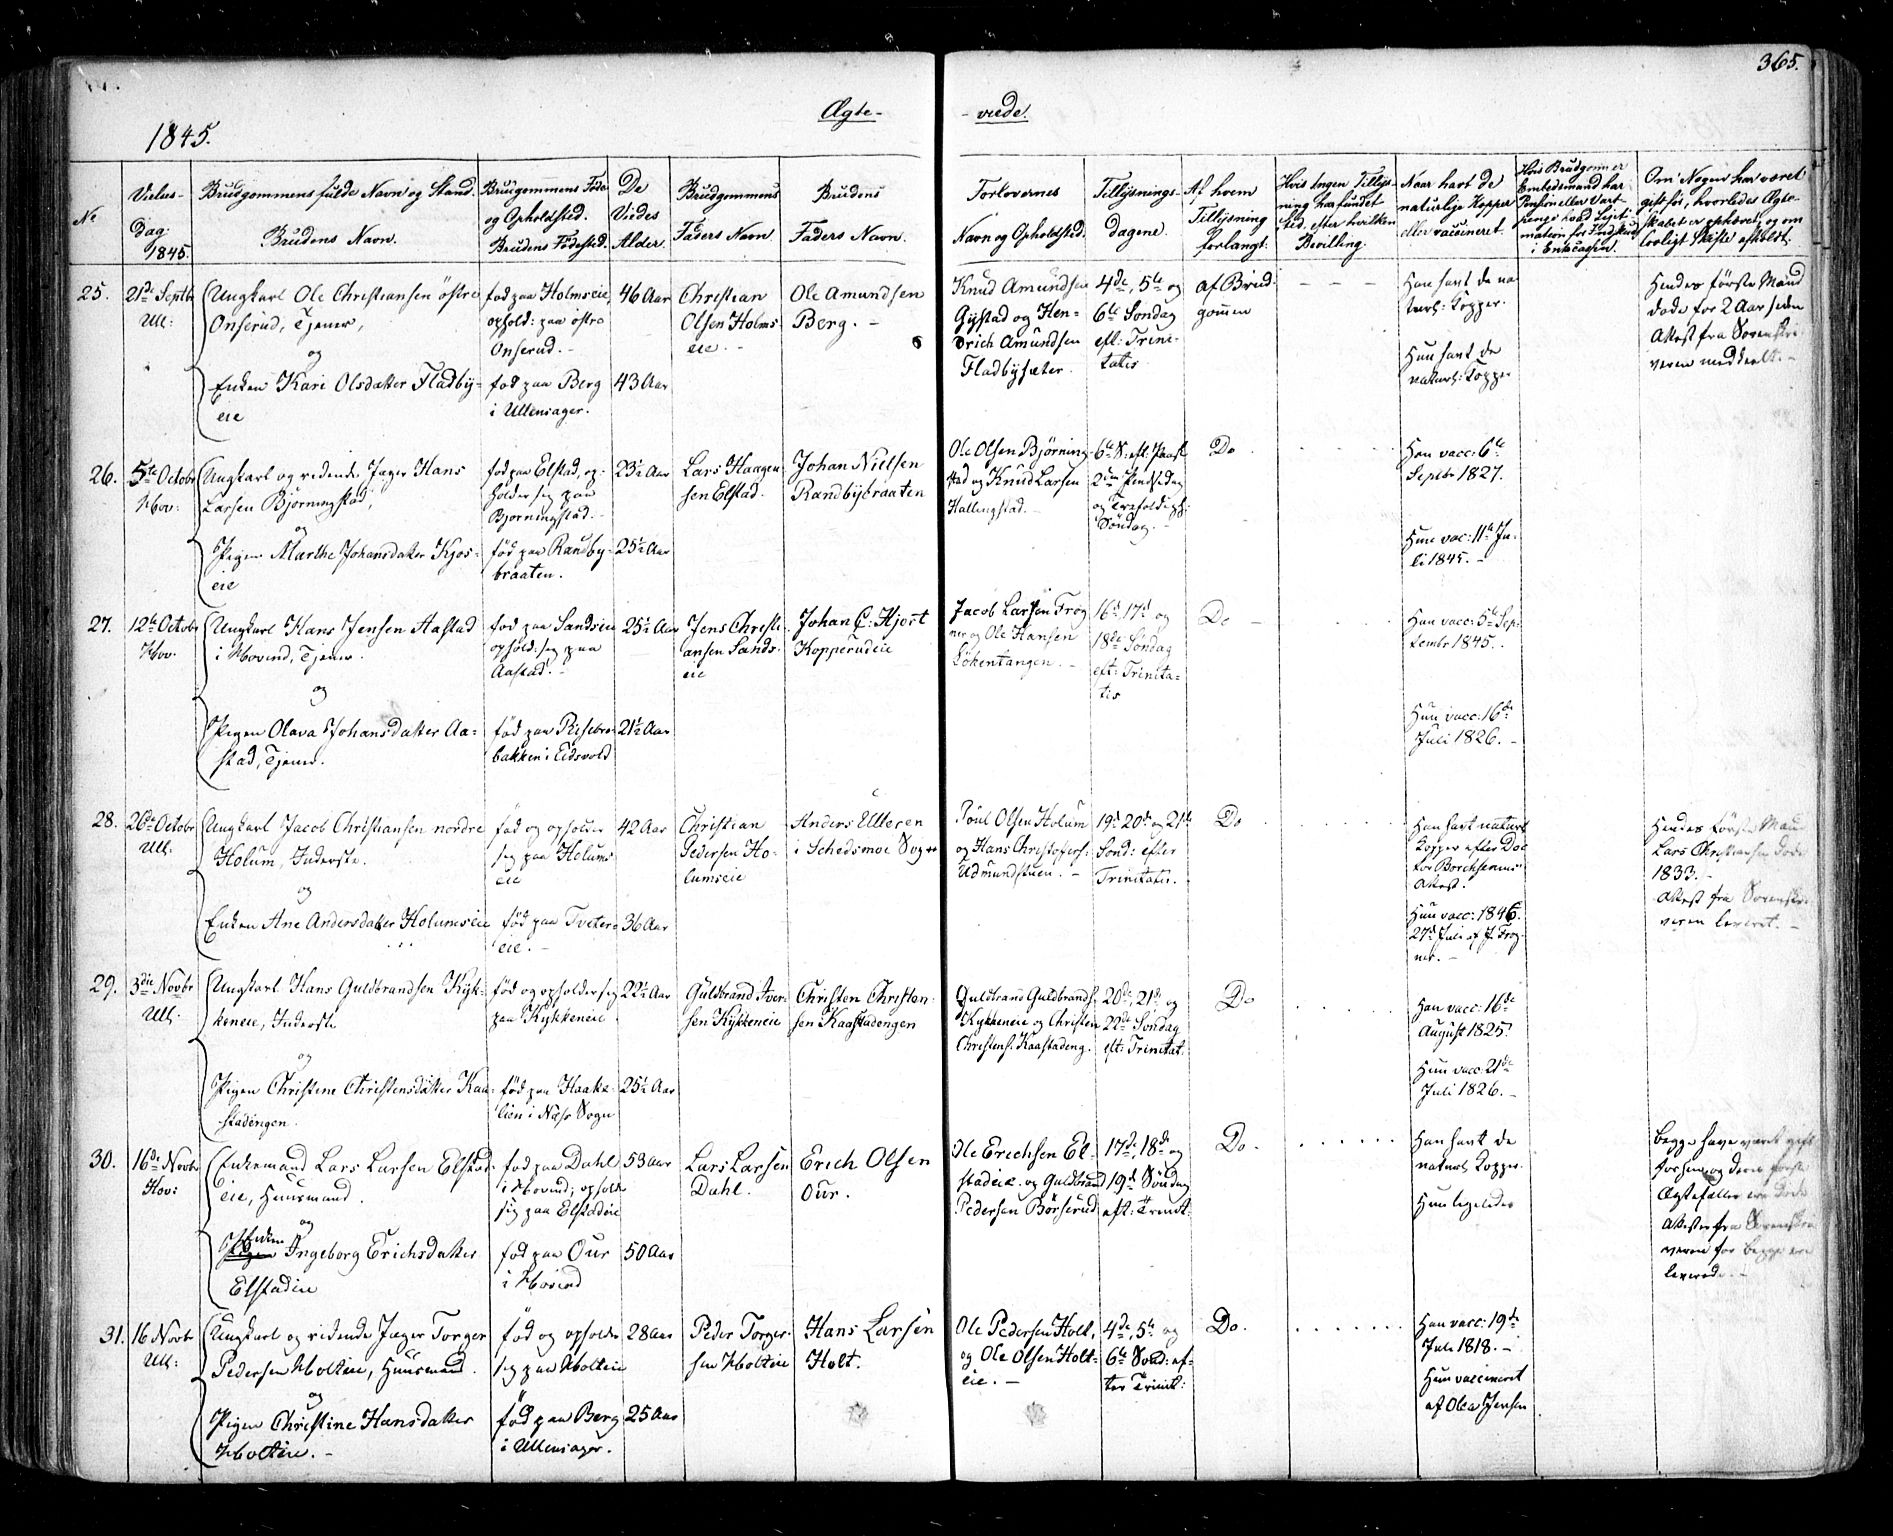 365.
Ægte- -viede.
1845.
No
Vielses-
Dag:
1845.
Brudgommens fulde Navn og Stand.
Brudens Navn.
Brudgommens Føde
og Opholdsted.
Brudens Fødested.
De
Viedes
Alder.
Brudgommens
Faders Navn.
Brudens
Faders Navn.
Forlovernes
Navn og Opholdsted.
Tillysnings-
dagene.
Af hvem
Tillysning
forlangt.
Hvis Ingen Tillys-
ning har fundet
Sted, efter hvilken
Bevilling.
Naar havt de
naturlige Kopper
eller vaccineret.
Hvis Brudgommen er
Embedsmand har
Pension eller
i Enkecassen.
Om Nogen har været
gift før, hvorledes Ægte-
skabet er ophævet, og om
lovligt Skifte afholdt.
25.
21de Septbr
Ull:
Ungkarl Ole Christiansen østre
Onserud, Tjener,
og
Enken Kari Olsdatter Fladbye-
eie
fød paa Holmseie,
ophold: paa østre
Onserud. -
fød paa Berg
i Ullensager.
46 Aar
43 Aar
Christian
Olsen Holms
eie. -
Ole Amundsen
Berg. -
Knud Amundsen
Gystad og Hen-
drich Amundsen
Fladbysæter.
4de, 5te og
6te Søndag
eft: Trini-
tatis
af Brud-
gommen
Han havt de na
turl: Kopper.
Hun havt de
naturl: Kopper
Hendes første Mand
døde for 2 Aar siden
Attest fra Sorenskri
veren meddeelt. -
26.
5te Octobr
Hov:
Ungkarl og ridende Jæger Hans
Larsen Bjørningstad,
og
Pigen Marthe Johansdatter Kjos-
eie
fød paa Elstad, op-
holder sig paa
Bjørningstad. -
fød paa Randby-
braaten.
23½ Aar
25½ Aar
Lars Haagen
sen Elstad.
Johan Nielsen
Randbybraaten
Ole Olsen Bjørning
stad og Knud Larsen
Hallingstad. -
6te S: eft: Paask
2den Pindsedag
og Trefoldigh:
Søndag. -
Do
Han vacc: 6te
Septbr 1827.
Hun vac: 11te Ju-
li 1845. -
27.
12te Octobr
Hov.
Ungkarl Hans Jensen Aastad
i Hovind, Tjener.
og
Pigen Olava Johansdatter Aa-
stad, Tjener.
fød paa Sandseie
ophold: sig paa
Aastad. -
fød paa Risebro-
bakken i Eidsvold
25½ Aar
21½ Aar
Jens Christi
ansen Sands-
eie
Johan C: Hjort
Kopperudeie
Jacob Larsen Frog
ner og Ole Hansen
Løkentangen. -
16de 17de og
18de Søndag
eft: Trinita-
tis
Do -
Han vacc: 5te Sep-
tembr 1845.
Hun vacc: 16de
Juli 1826. -
28.
26de Octobr
Ull:
Ungkarl Jacob Christiansen nordre
Holum, Inderste.
og
Enken Ane Andersdatter Holumseie
fød og opholder
sig paa Holums
eie
fød paa Tveter-
eie. -
42 Aar
36 Aar
Christian
Pedersen Ho-
lumseie
Anders Ulleren
i Schedsmoe Sogn
Poul Olsen Holum
og Hans Christofers:
Udmundstuen. -
19de 20de og 21de
Sond: efter
Trinitatis.
Do
Han havt naturl
Kopper efter Doc
tor Borchsenius
Attest.
Hun vacc: 1845.
27de Juli af J. Frog
ner. -
Hendes første Man
Lars Christiansen døde
1833. -
Attest fra Sorenskri
veren leveret. -
29.
3die Novbr
Ull:
Ungkarl Hans Guldbrandsen Kyk-
keneie, Inderste
og
Pigen Christine Christensdatter Kaa-
stadengen.
fød og opholder sig
paa Kykkeneie
fød paa Haake-
lien i Næs Sogn
22½ Aar
25½ Aar
Guldbrand Iver-
sen Kykkeneie
Christen Christen-
sen Kaastadengen
Guldbrand Guldbrands:
Kykkeneie og Christen
Christens: Kaastadeng.
20de, 21de og
22de Søndag
eft: Trinitat:
Do
Han vacc: 16de
August 1825.
Hun vacc: 21de
Juli 1826. -
30.
16de Novbr
Hov:
Enkemand Lars Larsen Elstad-
eie, Huusmand.
og
Enken
Ingeborg Erichsdatter
Elstadeie
fød paa Dahl
i Hovind; ophold
sig paa Elstadeie
fød paa Our
i Hovind
53 Aar
50 Aar
Lars Larsen
Dahl.
Erich Olsen
Our.
Ole Erichsen El-
stadeie og Guldbrand
Pedersen Børserud
17de, 18de og
19de Søndag
eft: Trinit:
Do.
Han havt de
naturl: Kopper.
Hun ligeledes
Begge have været gift
før hen og deres første
Ægtefæller ere døde
Attester fra Sorenskri
veren for begge ere
leverede. -
31.
16 Novbr
Ull:
Ungkarl og ridende Jæger Torger
Pedersen Holteie, Huusmand.
og
Pigen Christine Hansdatter
Holteie. -
fød og opholder
sig paa Holteie
fød paa Berg
i Ullensager.
28 Aar
25 Aar
Peder Torger-
sen Holteie
Hans Larsen
Holt.
Ole Pedersen Holt,
og Ole Olsen Holt-
eie. -
4de, 5te og
6te Sønd: ef-
ter Trinit:
Do.
Han vacc: 19de
Juli 1818. -
Hun vaccineret
af Olea Jensen